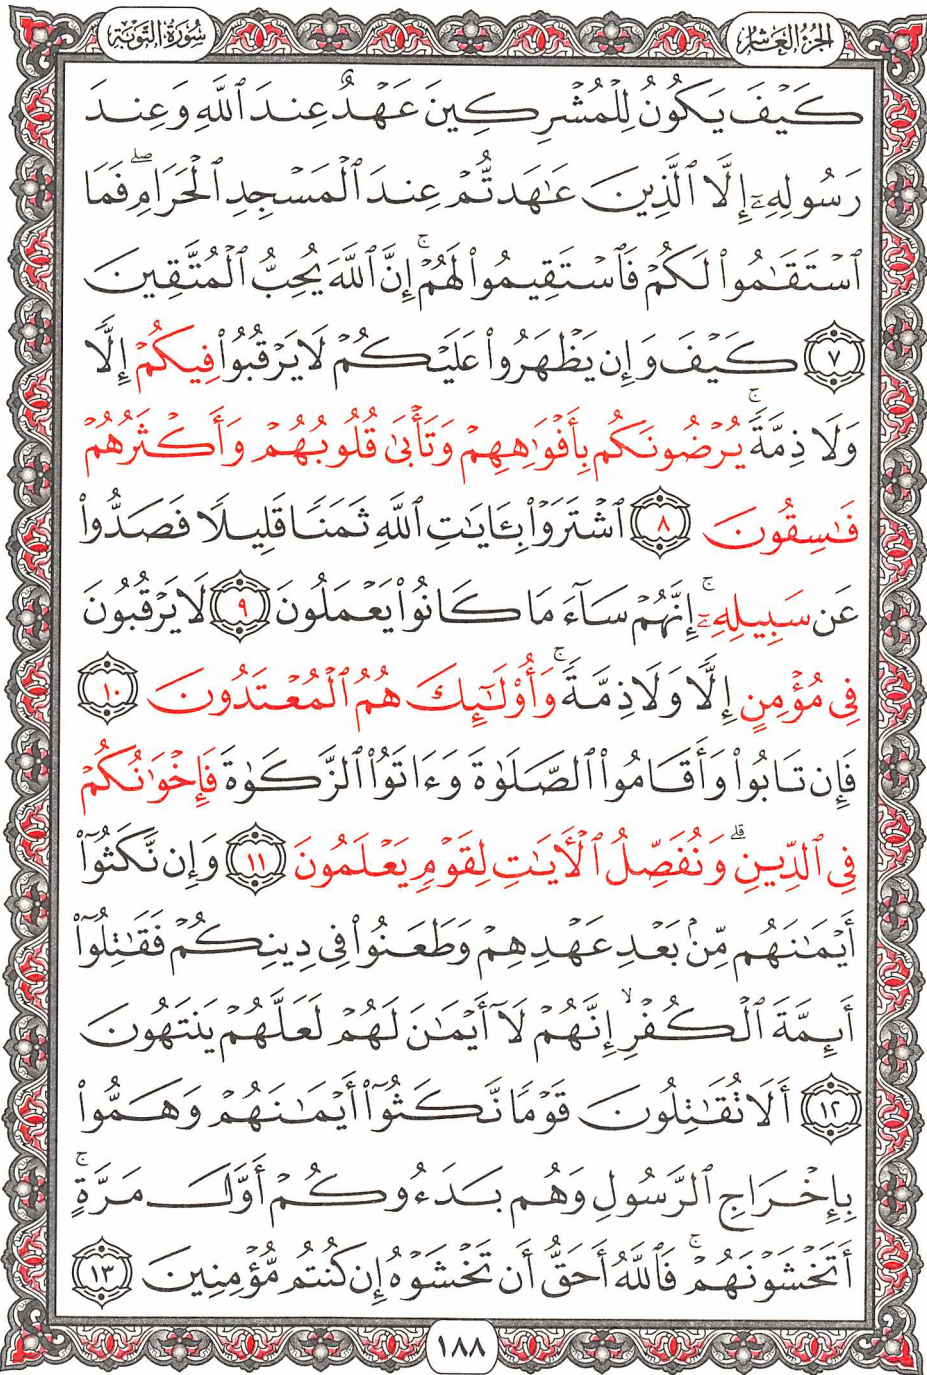 الجزء العاشر
سورة التوبة
كَيْفَ يَكُونُ لِلْمُشْرِكِينَ عَهْدٌ عِندَ ٱللَّهِ وَعِندَ
رَسُولِهِۦٓ إِلَّا ٱلَّذِينَ عَٰهَدتُّمْ عِندَ ٱلْمَسْجِدِ ٱلْحَرَامِ ۖ فَمَا
ٱسْتَقَٰمُوا۟ لَكُمْ فَٱسْتَقِيمُوا۟ لَهُمْ ۚ إِنَّ ٱللَّهَ يُحِبُّ ٱلْمُتَّقِينَ
٧ كَيْفَ وَإِن يَظْهَرُوا۟ عَلَيْكُمْ لَا يَرْقُبُوا۟ فِيكُمْ إِلًّا
وَلَا ذِمَّةً ۚ يُرْضُونَكُم بِأَفْوَٰهِهِمْ وَتَأْبَىٰ قُلُوبُهُمْ وَأَكْثَرُهُمْ
فَٰسِقُونَ ٨ ٱشْتَرَوْا۟ بِـَٔايَٰتِ ٱللَّهِ ثَمَنًا قَلِيلًا فَصَدُّوا۟
عَن سَبِيلِهِۦٓ ۚ إِنَّهُمْ سَآءَ مَا كَانُوا۟ يَعْمَلُونَ ٩ لَا يَرْقُبُونَ
فِى مُؤْمِنٍ إِلًّا وَلَا ذِمَّةً ۚ وَأُو۟لَٰٓئِكَ هُمُ ٱلْمُعْتَدُونَ ١٠
فَإِن تَابُوا۟ وَأَقَامُوا۟ ٱلصَّلَوٰةَ وَءَاتَوُا۟ ٱلزَّكَوٰةَ فَإِخْوَٰنُكُمْ
فِى ٱلدِّينِ ۗ وَنُفَصِّلُ ٱلْأَيَٰتِ لِقَوْمٍ يَعْلَمُونَ ١١ وَإِن نَّكَثُوٓا۟
أَيْمَٰنَهُم مِّنۢ بَعْدِ عَهْدِهِمْ وَطَعَنُوا۟ فِى دِينِكُمْ فَقَٰتِلُوٓا۟
أَئِمَّةَ ٱلْكُفْرِ ۙ إِنَّهُمْ لَآ أَيْمَٰنَ لَهُمْ لَعَلَّهُمْ يَنتَهُونَ
١٢ أَلَا تُقَٰتِلُونَ قَوْمًا نَّكَثُوٓا۟ أَيْمَٰنَهُمْ وَهَمُّوا۟
بِإِخْرَاجِ ٱلرَّسُولِ وَهُم بَدَءُوكُمْ أَوَّلَ مَرَّةٍ ۚ
أَتَخْشَوْنَهُمْ ۚ فَٱللَّهُ أَحَقُّ أَن تَخْشَوْهُ إِن كُنتُم مُّؤْمِنِينَ ١٣
١٨٨